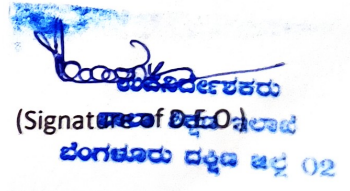 ಉಪನಿರ್ದೇಶಕರು
(Signature of D.E.O.)
ಶಾಲಾ ಶಿಕ್ಷಣ ಇಲಾಖೆ
ಬೆಂಗಳೂರು ದಕ್ಷಿಣ ಜಿಲ್ಲೆ 02